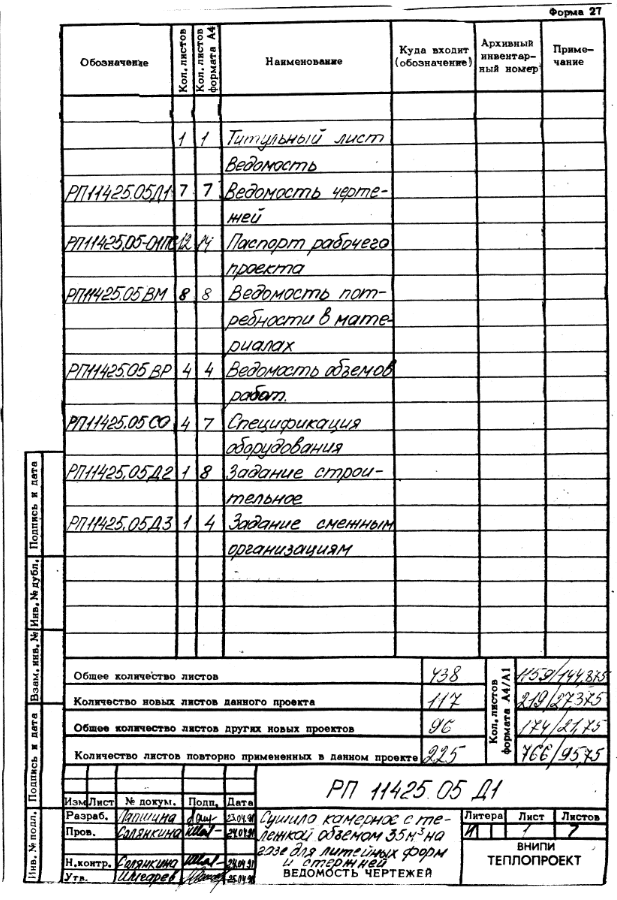 Форма 27
Обозначение Кол. листов Кол. листов формата А4 Наименование Куда входит (обозначение) Архивный инвентарный номер Примечание
1 1 Титульный лист
Ведомость
РП11425.05Д1 7 7 Ведомость черте-
жей
РП11425.05-01ПС 12 14 Паспорт рабочего
проекта
РП11425.05 ВМ 8 8 Ведомость пот-
ребности в мате-
риалах
РП11425.05 ВР 4 4 Ведомость объемов
работ.
РП11425.05 СО 4 7 Спецификация
оборудования
РП11425.05Д2 1 8 Задание строи-
тельное
РП11425.05Д3 1 4 Задание смежным
организациям
Общее количество листов 438 1159/144,875
Количество новых листов данного проекта 117 219/27375
Общее количество листов других новых проектов 96 174/21,75
Количество листов повторно примененных в данном проекте 225 766/95,75
Кол. листов формата А4/А1
РП 11425.05 Д1
Изм Лист № докум. Подп. Дата
Разраб. Лапшина 23.04.91
Пров. Солянкина 24.04.91
Н.контр. Солянкина 24.04.91
Утв.
Сушило камерное с те-
лежкой объемом 35м³ на
газе для литейных форм
и стержней
ВЕДОМОСТЬ ЧЕРТЕЖЕЙ
Литера Лист Листов
И 1 7
ВНИПИ
ТЕПЛОПРОЕКТ
Подпись и дата
Инв. № дубл.
Взам. инв. №
Подпись и дата
Инв. № подл.